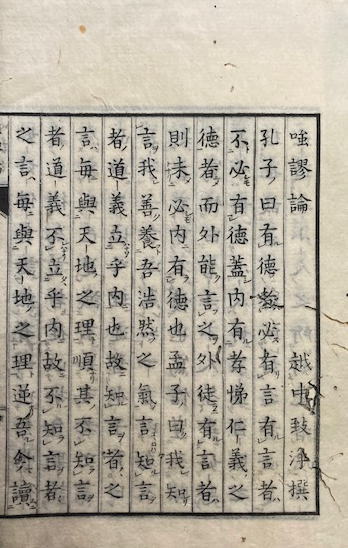 嗤謬論 越中致淨撰
孔子曰有德者必有言有言者
不必有德蓋內有孝悌仁義之
德者而外能言之外徒有言者
則未必內有德也孟子曰我知
言我善養吾浩然之氣言知言
者道義立乎內也故知言者之
言每與天地之理順其不知言
者道義不立乎內故不知言者
之言每與天地之理逆吾今讀